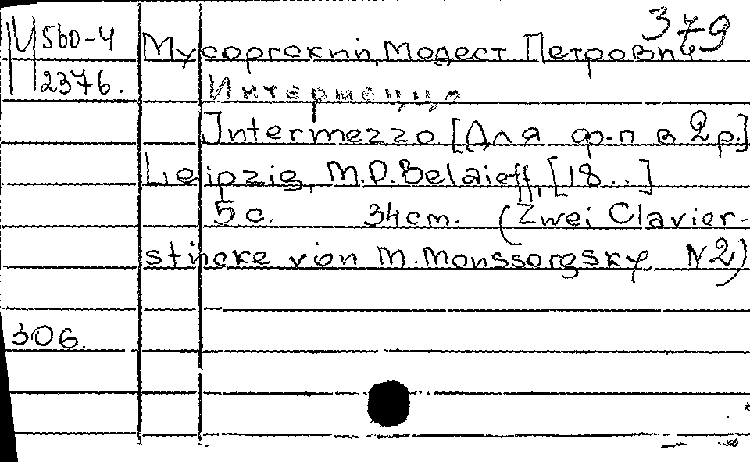 379
М 5bD-4
2376.
Мусоргский, Модест Петрович
Интермеццо
Intermezzo [Для ф-п в 2р.]
Leipzig, M.P.Belaieff, [18...]
5 с. 34 cm. (Zwei Clavier-
stücke von M. Moussorgsky N2)
306.